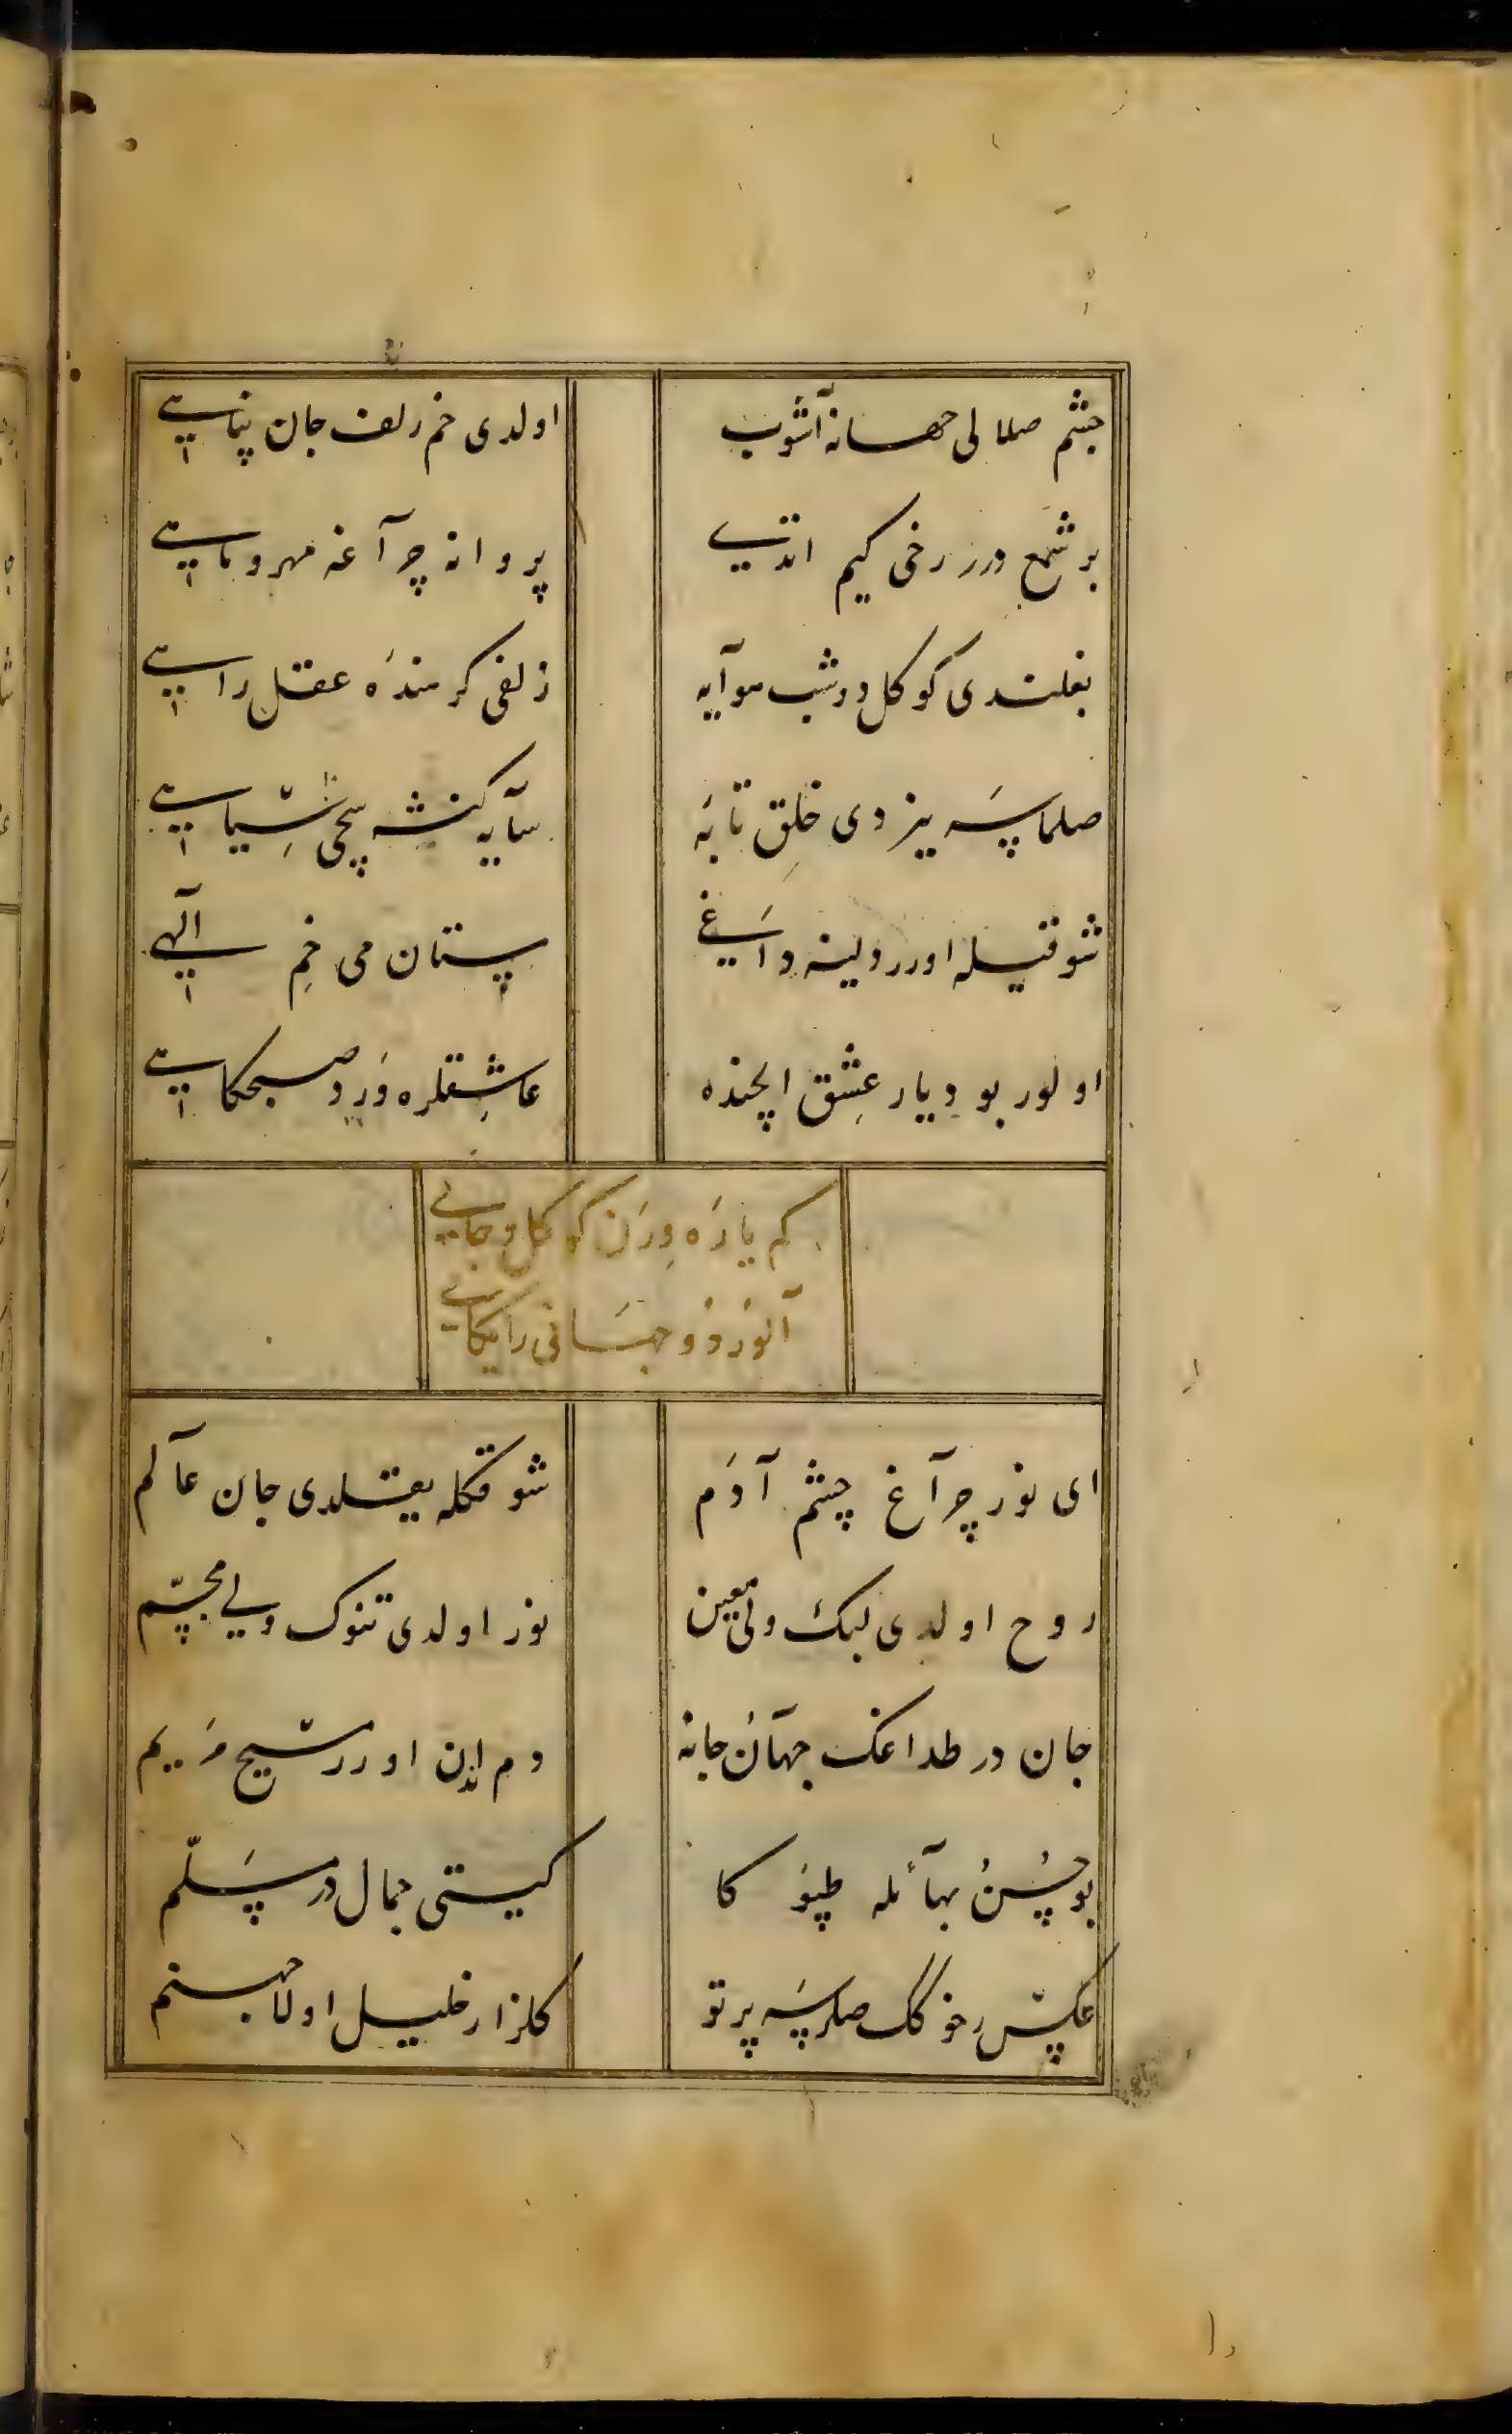 چشم صلالی جهانه آشوب اولدی خم زلف جان پناهی
بر شمع درر رخی کیم اندی پروانه چراغنه مهر و ماهی
بغلندی کوکل درشب موآیه زلفی کرمنده عقل راهی
صلماسه یزدی خلق تابه سایه کنشه سچی سیاهی
شوقیله اورر ولینه داغی بستان می خم الهی
اولور بو دیار عشق ایچنده عاشقلره ورد صبحکاهی
کم یاره ویرن کوکل و جانی
آلور دو جهانی رایکانی
ای نور چراغ چشم آدم شوقکله یقلدی جان عالم
روح اولدی لبک ولی معین نور اولدی تنوک ولی مجسم
جان در طداغک جهان جانه دم اندن اورر مسیح مریم
بو حسن بهائله طپو کا کیستی جمال در مسلم
عکس رخوکک صلرسه پرتو کلزار خلیل اولا جهنم